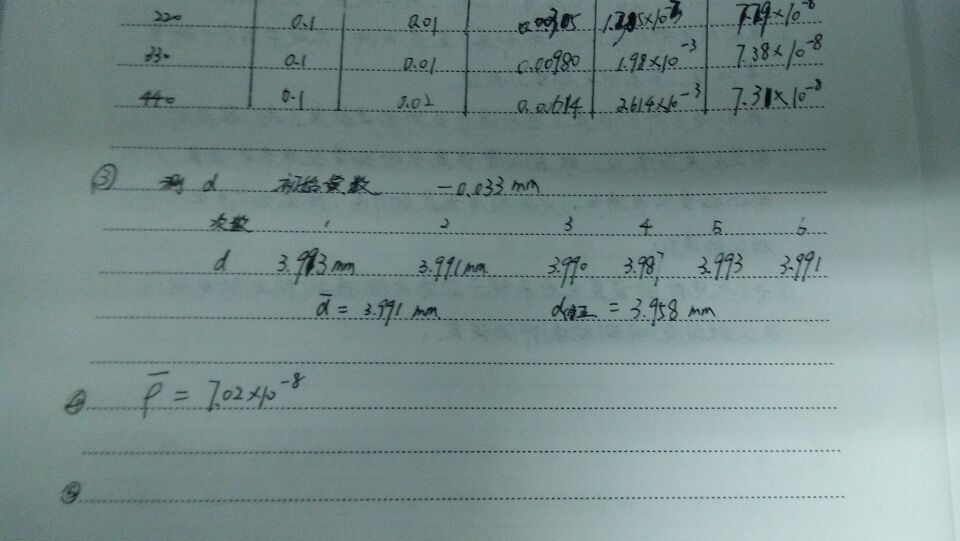 220 0.1 0.01
330 0.1 0.01 0.00980 1.98×10⁻³ 7.38×10⁻⁸
440 0.1 0.02 2.614×10⁻³ 7.31×10⁻⁸
③ 测 d 初始读数 -0.033 mm
次数 1 2 3 4 5 6
d 3.993 mm 3.991 mm 3.990 3.987 3.993 3.991
d̄ = 3.991 mm d修正 = 3.958 mm
④ ρ̄ = 7.02×10⁻⁸
⑤